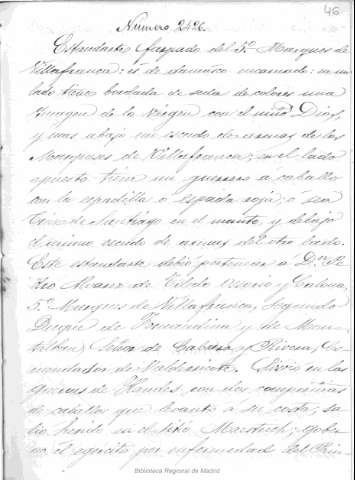 46
Número 2426.
Estandarte gaspado del 5.º Marques de
Villafranca: és de damasco encarnado: en un
lado tiene bordada de seda de colores una
Imagen de la Virgen con el niño Dios,
y mas abajo un escudo de armas de los
Marqueses de Villafranca; en el lado
opuesto tiene un guerrero a caballo
con la espadilla ó espada roja, ó sea
Cruz de Santiago en el manto, y debajo
el mismo escudo de armas del otro lado.
Este estandarte debió pertenecer a Dn. Pe
dro Alvarez de Toledo Osorio y Colona,
5.º Marques de Villafranca, segundo
Duque de Fernandina y de Mon-
talban, Señor de Cabrera y Rivera, Co-
mendador de Valderricote. Sirvió en las
guerras de Flandes con dos compañias
de caballos que levantó a su costa; sa-
lió herido en el sitio Mastrich; gober-
nó el egército por enfermedad del Prin-
Biblioteca Regional de Madrid